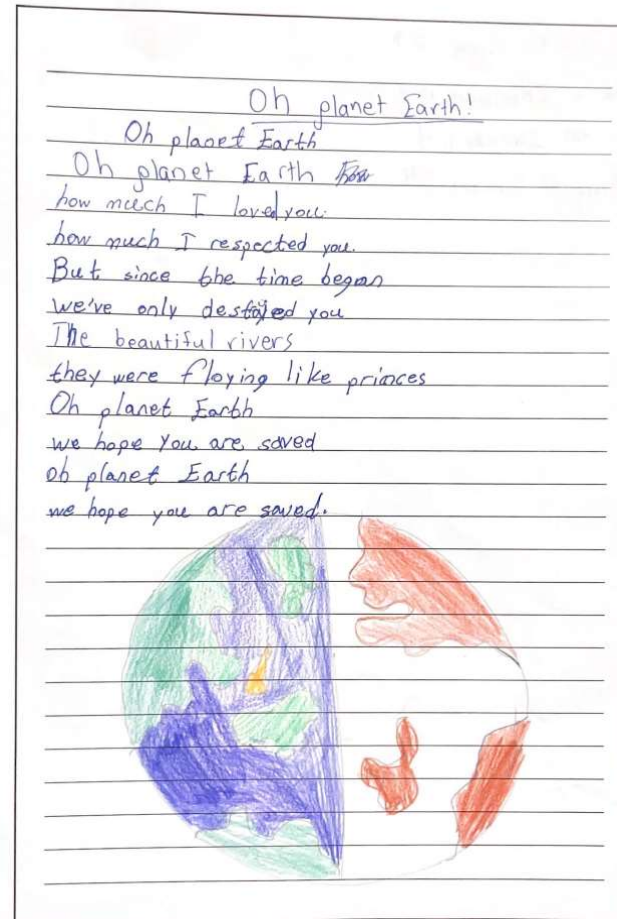 Oh planet Earth!
Oh planet Earth
Oh planet Earth
how much I loved you.
how much I respected you.
But since the time began
we've only destojed you
The beautiful rivers
they were floying like princes
Oh planet Earth
we hope you are saved
oh planet Earth
we hope you are saved.